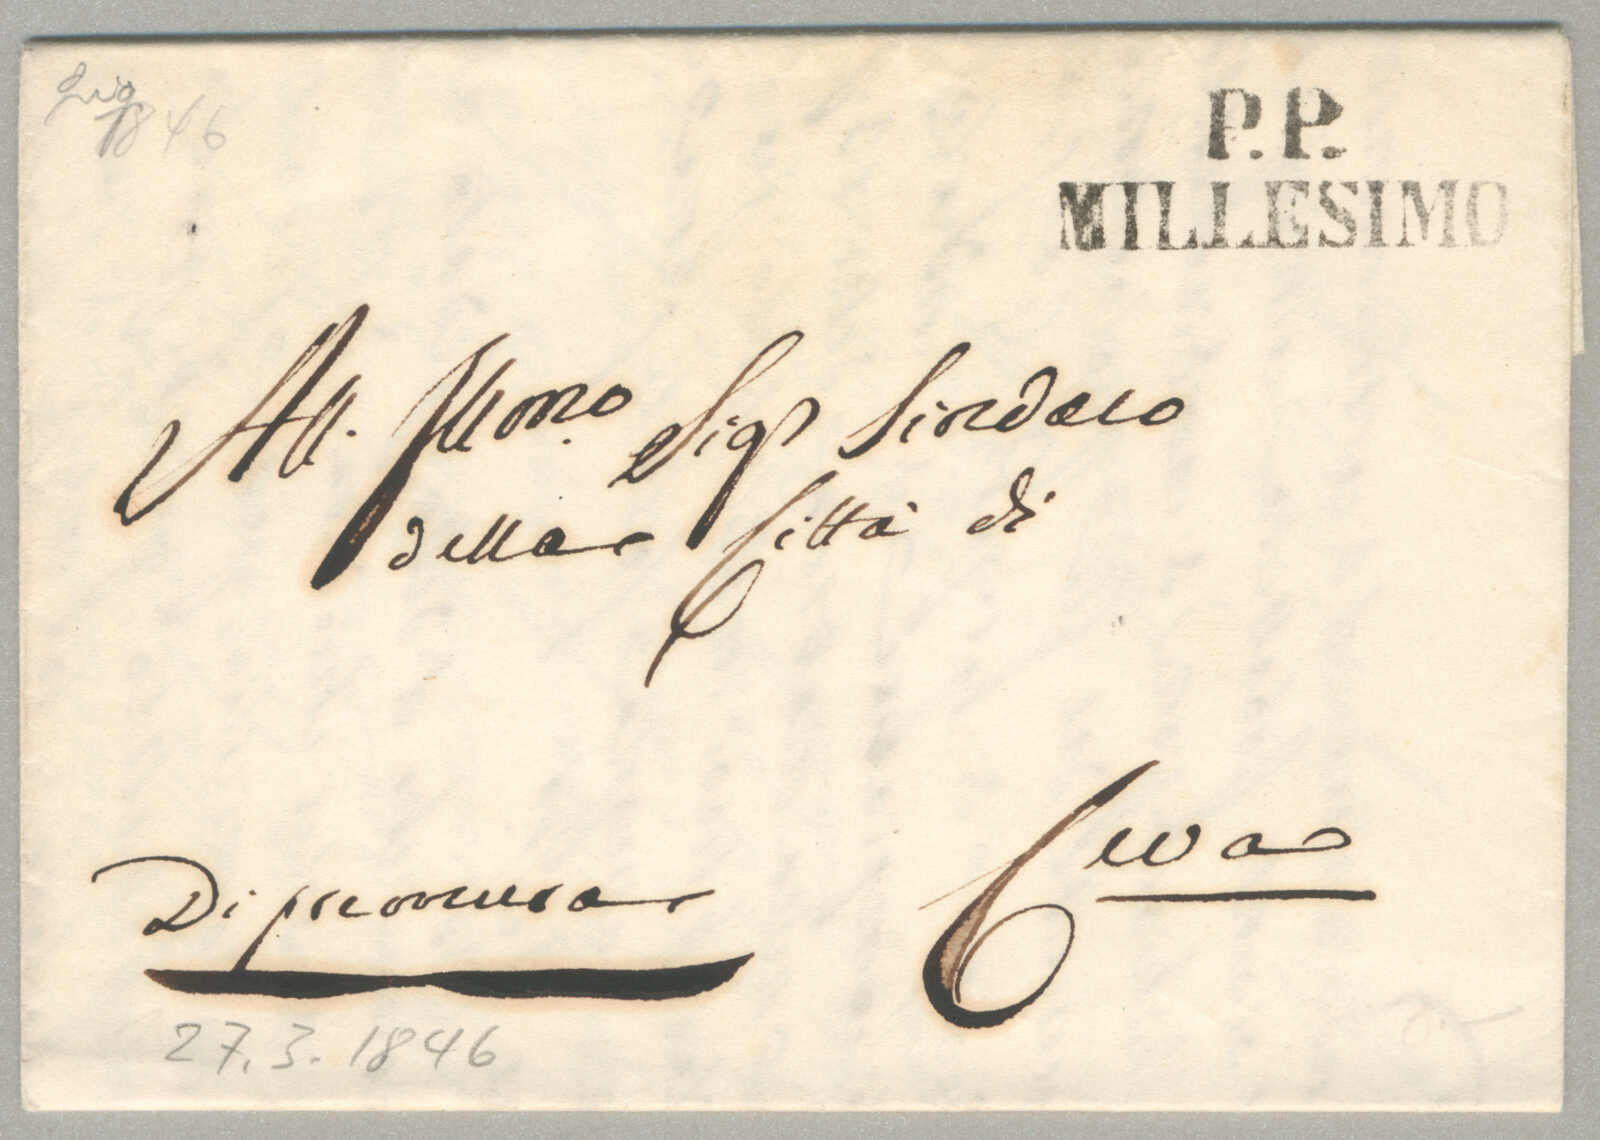 1846
P.P.
MILLESIMO
All. Illmo. Sigr Sindaco
della Città di
Ceva
Di premura
27.3.1846